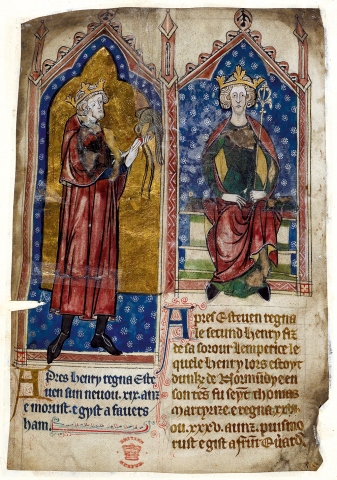 Apres henry regna Este
ven sun nevou. xix. anz
e morust e gyst a favers
ham.
Apres Esteven regna
le secund henry fiz
de sa sorour lemperice le
quele henry lors estoyt
dunk de Normundy e en
son tens fu seynt thomas
martyrize e regna
ou .xxxv. aunz. puis mo
rust e gist a funt Euard.